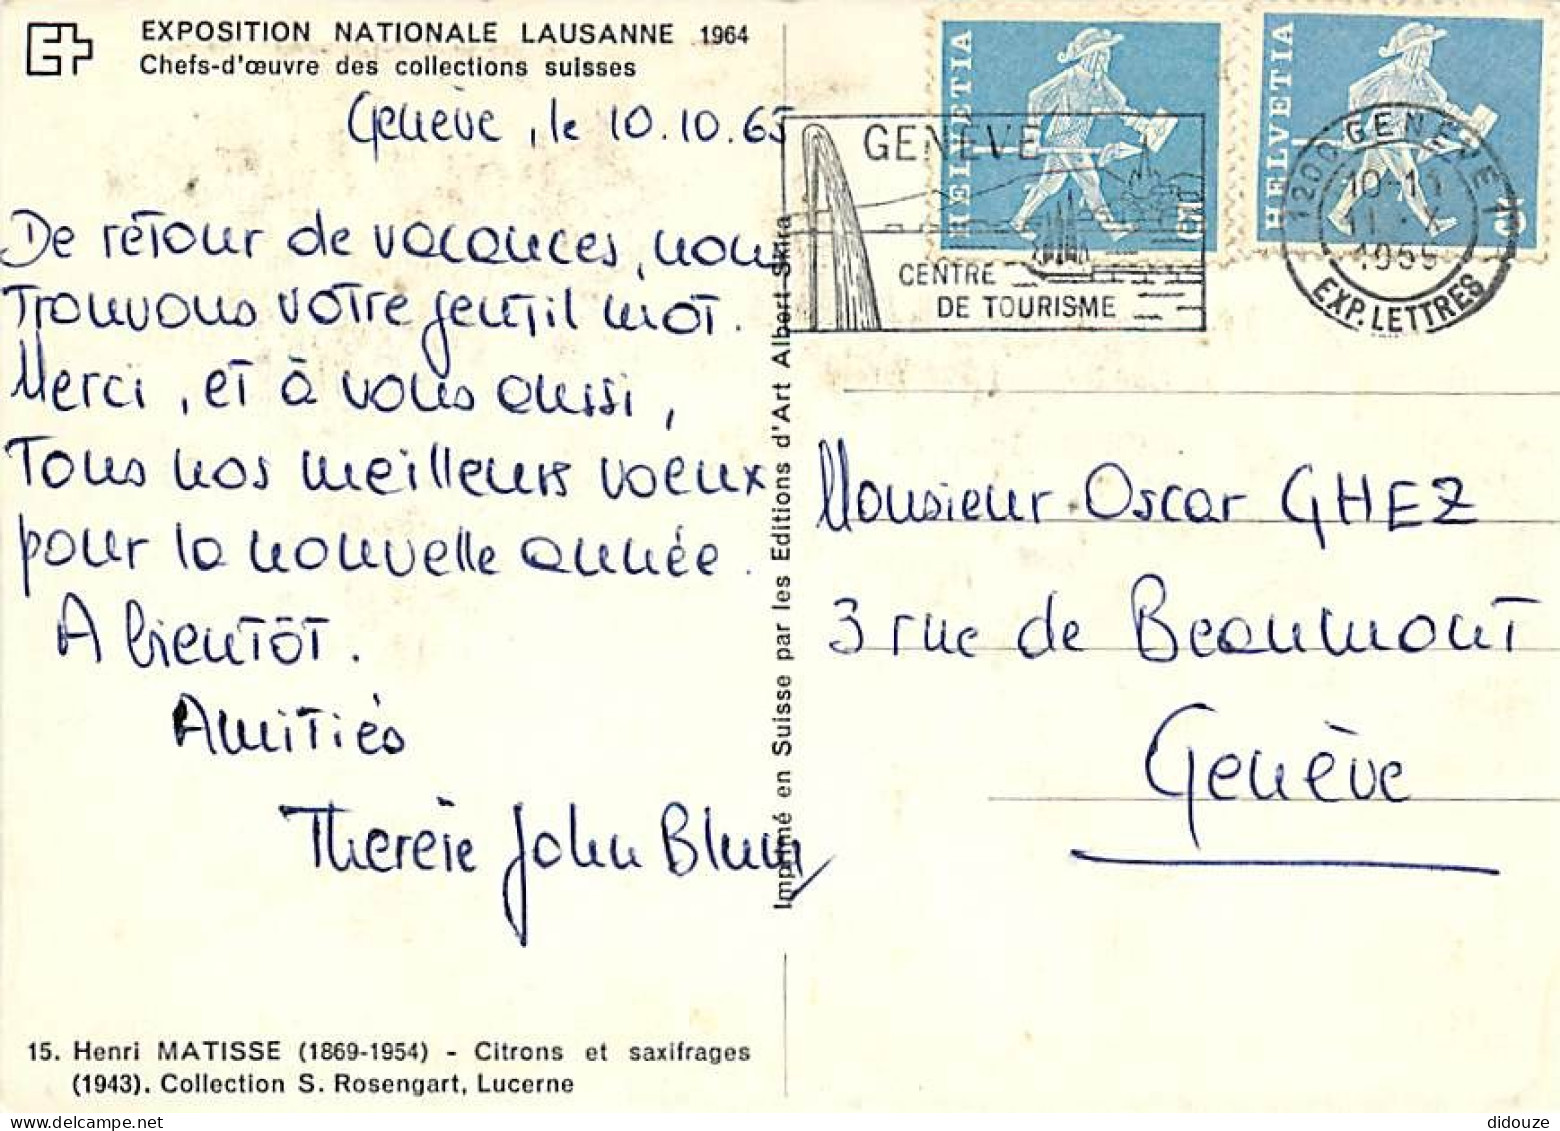 EXPOSITION NATIONALE LAUSANNE 1964
Chefs-d'œuvre des collections suisses
Genève, le 10.10.65
De retour de vacances, nous
trouvons votre gentil mot.
Merci, et à vous aussi,
Tous nos meilleurs voeux
pour la nouvelle année.
A bientôt.
Amitiés
Thérèse John Blum
15. Henri MATISSE (1869-1954) - Citrons et saxifrages
(1943). Collection S. Rosengart, Lucerne
Imprimé en Suisse par les Editions d'Art Albert Skira
HELVETIA
HELVETIA
GENEVE
CENTRE
DE TOURISME
1200 GENEVE 1
10-11
11.X
1965
EXP. LETTRES
Monsieur Oscar GHEZ
3 rue de Beaumont
Genève
didouze